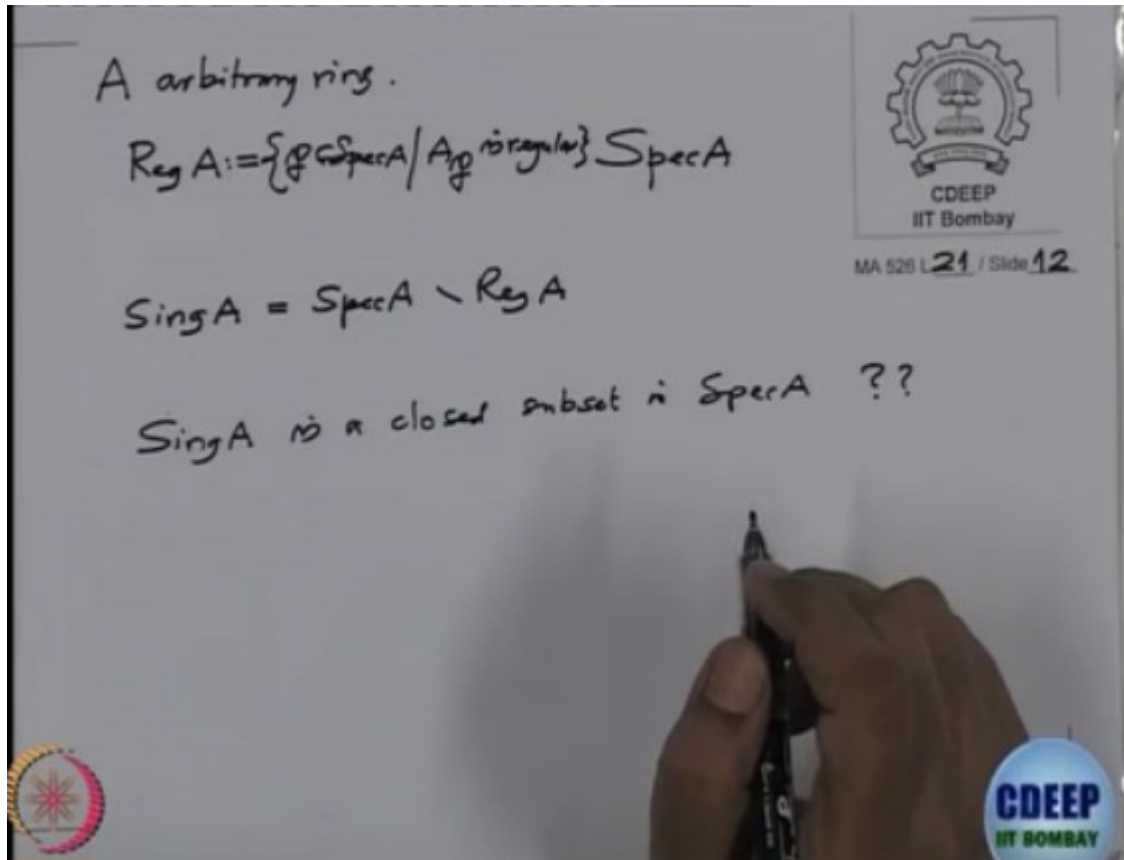 A arbitrary ring.
Reg A := {℘ ∈ Spec A / A_℘ is regular} Spec A
CDEEP
IIT Bombay
MA 526 L 21 / Slide 12
Sing A = Spec A \ Reg A
Sing A is a closed subset in Spec A ??
CDEEP
IIT BOMBAY